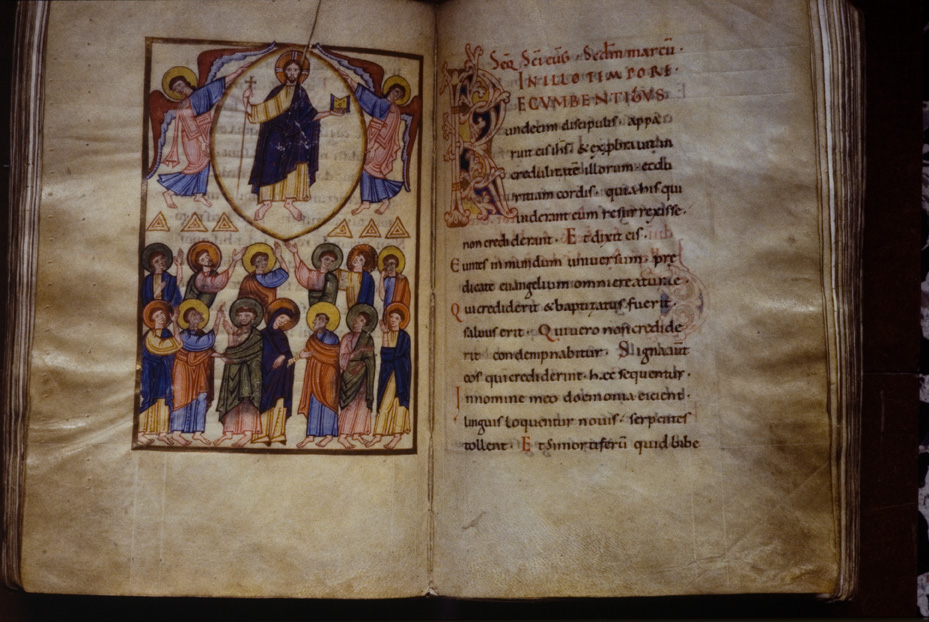 Seq̄. Sc̄i eūg. Sedm̄ marcū.
IN ILLO TIMPORE
RECUMBENTIBUS
undecim discipulis. appa
ruit eis ih̄s. & exprobravit in
credulitatē illorum. et du
ritiam cordis. quia his qui
viderant eum resurrexisse.
non crediderunt. Et dixit eis.
Euntes in mundum universum. pre
dicate evangelium omni creature.
Qui crediderit & baptizatus fuerit.
salvus erit. Qui vero non credide
rit condempnabitur. Signa aūt
eos qui crediderint. hec sequentur.
In nomine meo doemonia eicient.
linguis loquentur novis. serpentes
tollent. Et si mortiferū quid bibe